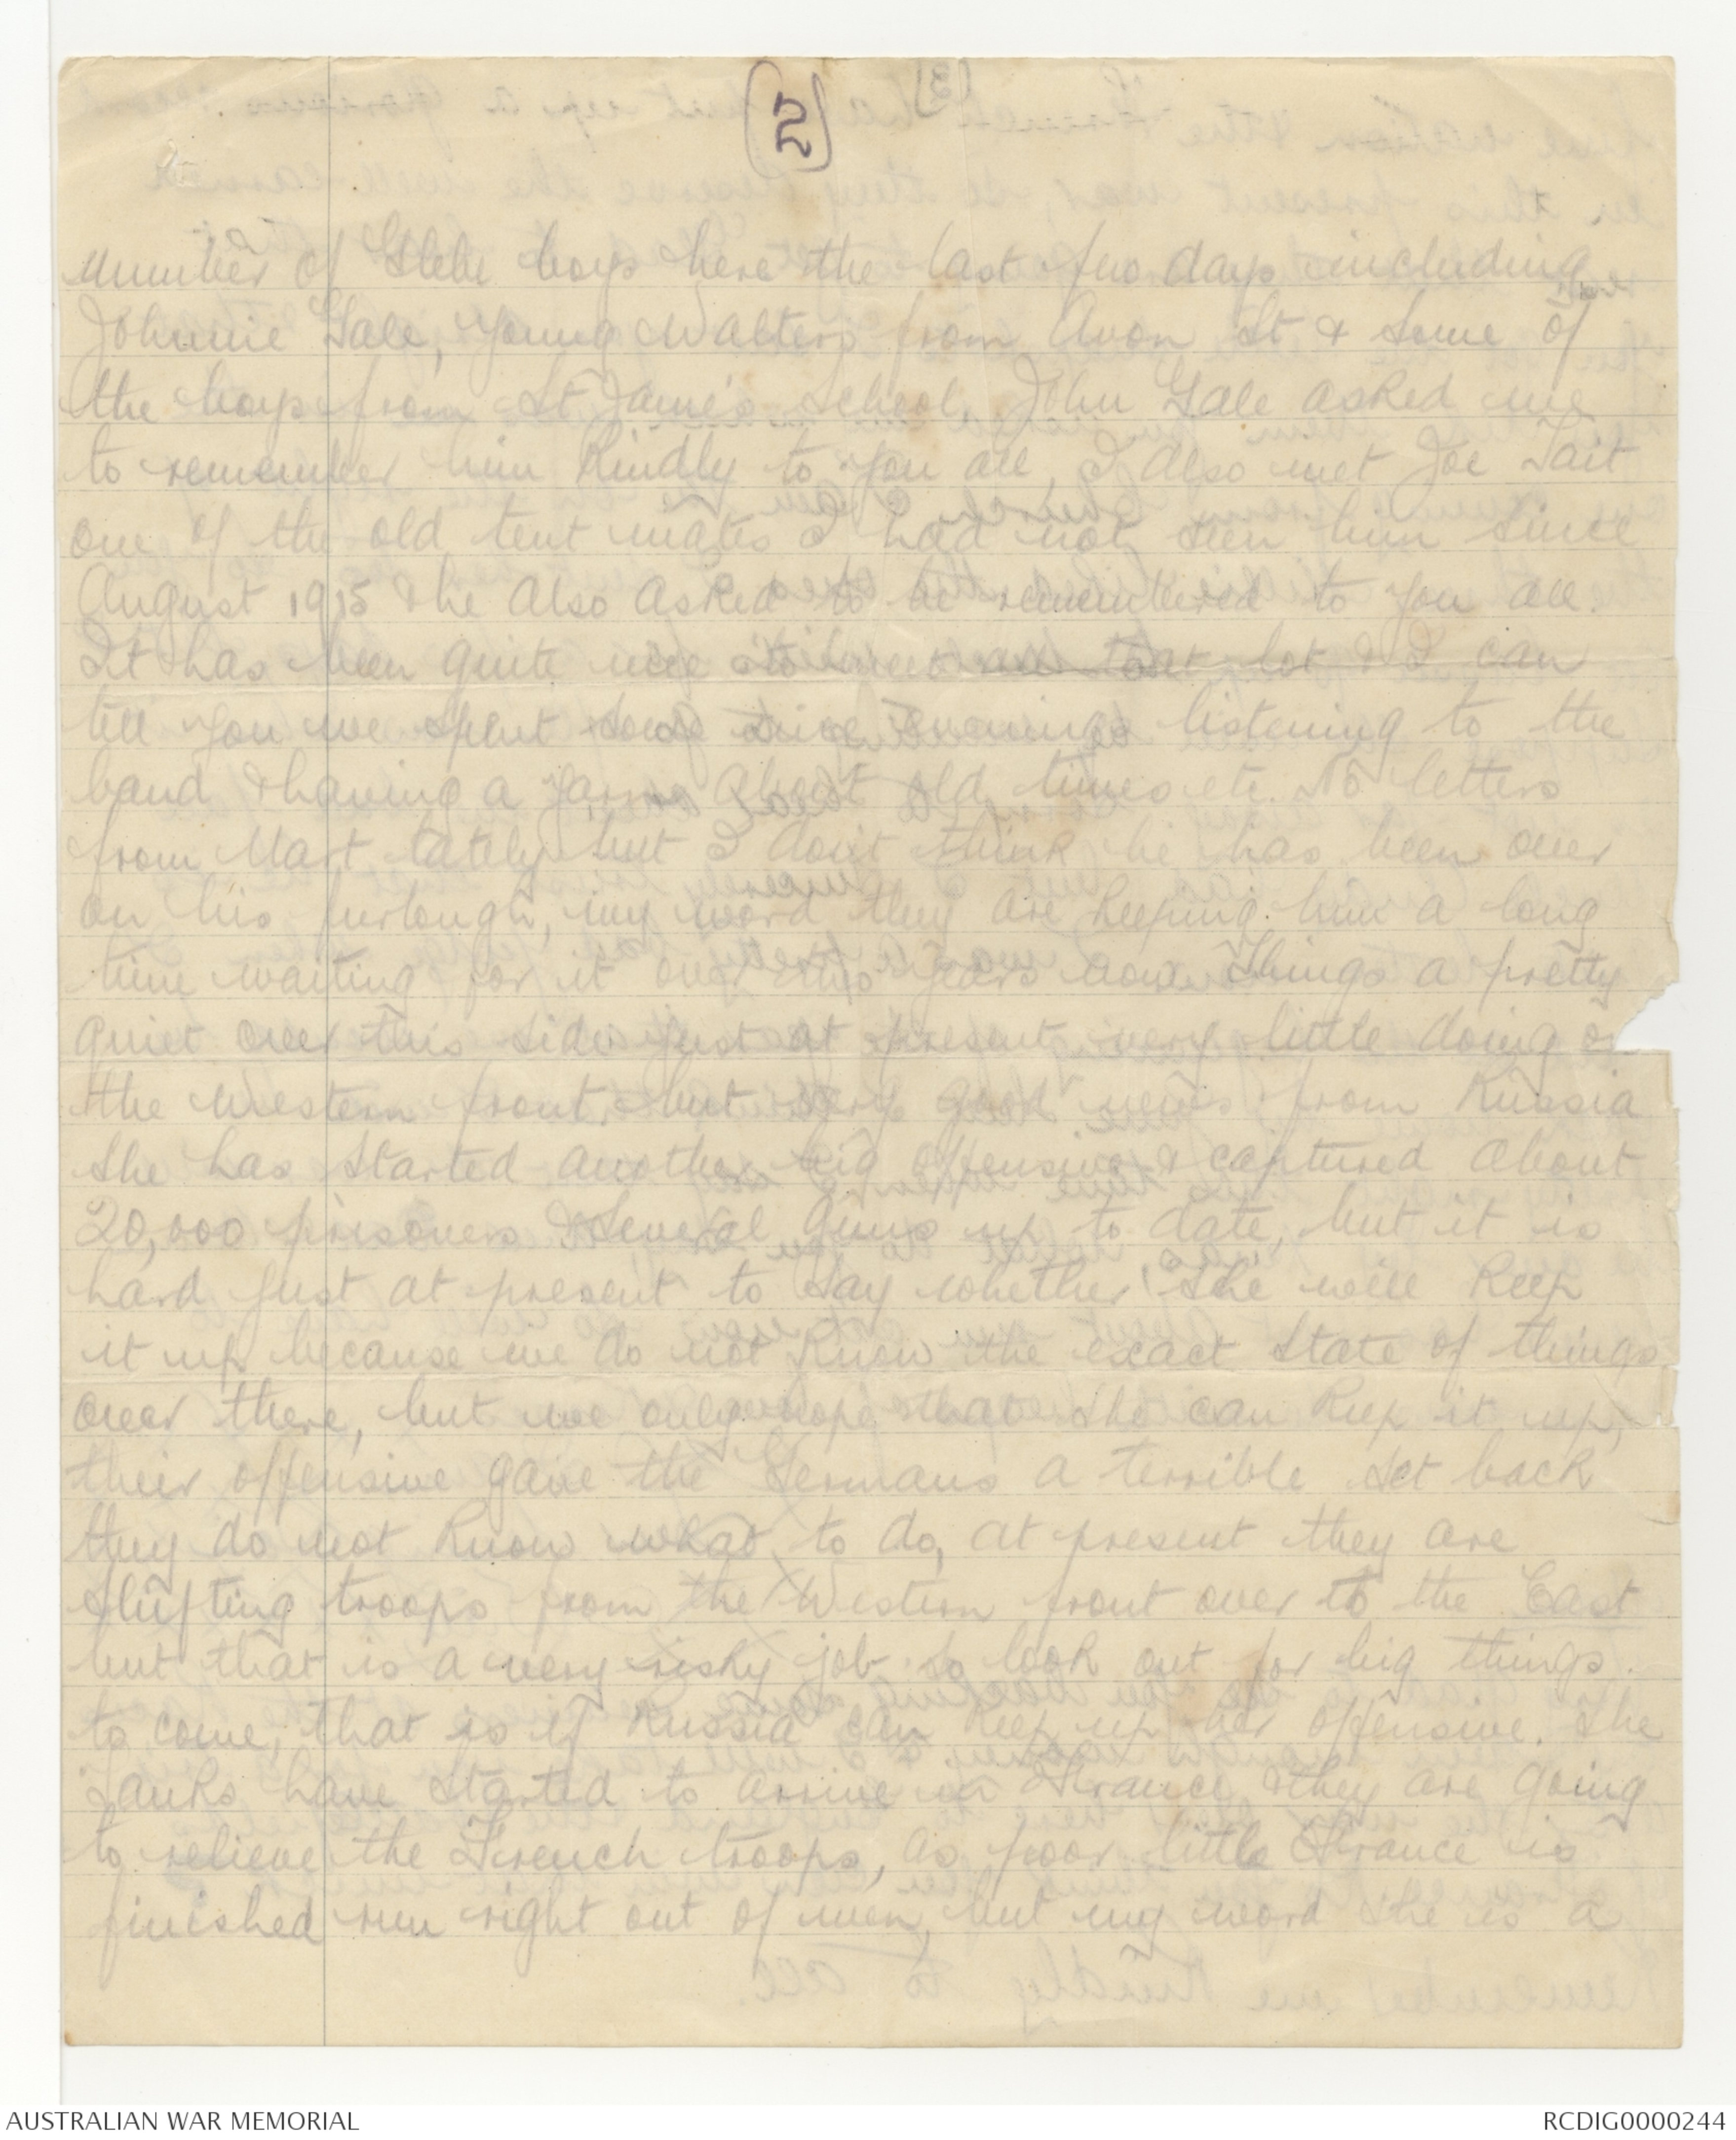 (5)
number of Glebe boys here the last few days including
Johnnie Gale, young Walters from Avon St & some of
the boys from St James's school, John Gale asked me
to remember him kindly to you all, I also met Joe Tait
one of the old tent mates I had not seen him since
August 1915 & he also asked to be remembered to you all.
It has been quite nice to meet all that lot & I can
tell you we spent some nice evenings listening to the
band & having a yarn about old times etc. No letters
from Mart lately but I don't think he has been over
on his furlough, my word they are keeping him a long
time waiting for it over two years now. Things a pretty
quiet over this side just at present, very little doing on
the Western front, but very good news from Russia
she has started another big offensive & captured about
20,000 prisoners & several guns up to date, but it is
hard just at present to say whether she will keep
it up because we do not know the exact state of things
over there, but we only hope that she can keep it up,
their offensive gave the Germans a terrible set back
they do not know what to do, at present they are
shifting troops from the Western front over to the East
but that is a very risky job so look out for big things
to come, that is if Russia can keep up her offensive. The
Yanks have started to arrive in France & they are going
to relieve the French troops, as poor little France is
finished run right out of men, but my word she is a
AUSTRALIAN WAR MEMORIAL
RCDIG0000244